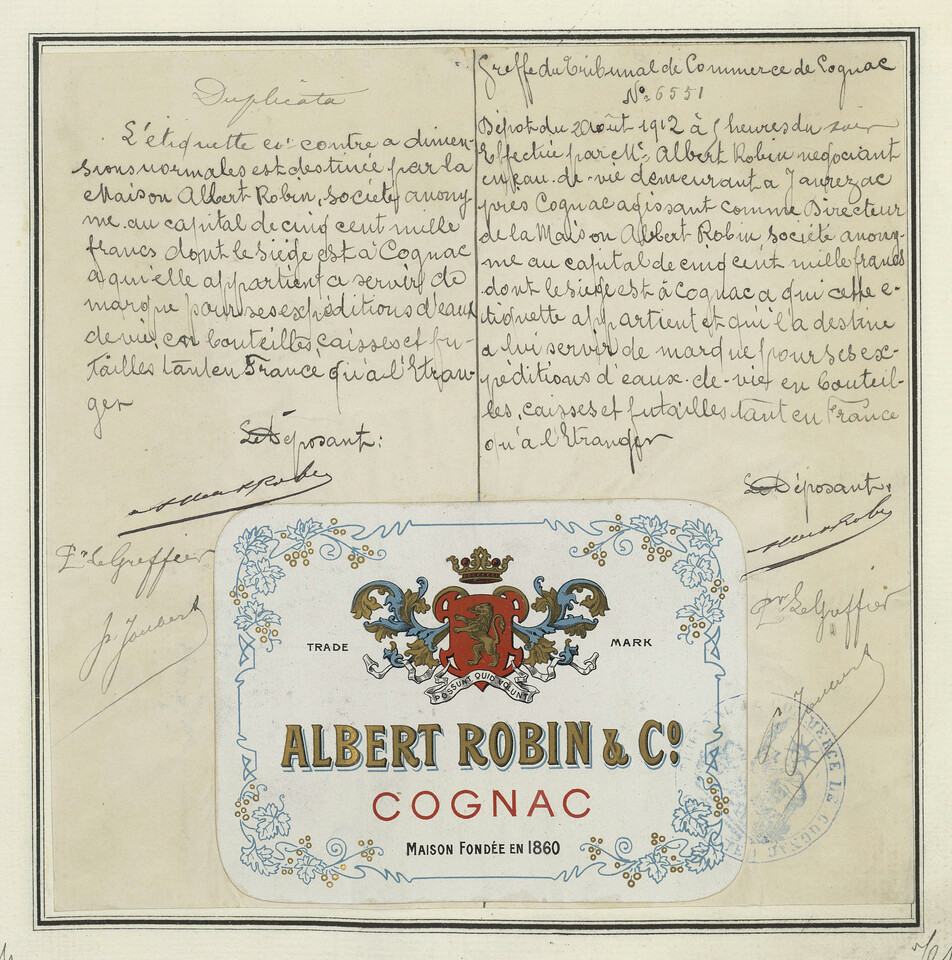 Duplicata
L'étiquette ci-contre a dimen-
sions normales est destinée par la
Maison Albert Robin, société anony-
me au capital de cinq cent mille
francs dont le siège est à Cognac
a qui elle appartient a servir de
marque pour ses expéditions d'eaux
de vie, en bouteilles, caisses et fu-
tailles tant en France qu'à l'Etran-
ger
Le Déposant:
Albert Robin
Pr le Greffier
Greffe du Tribunal de Commerce de Cognac
No 6551
Dépot du 2 Août 1912 à heures du soir
Effectuée par Mr Albert Robin négociant
en eau-de-vie demeurant a Javrezac
près Cognac agissant comme Directeur
de la Maison Albert Robin société anony-
me au capital de cinq cent mille francs
dont le siège est à Cognac a qui cette e-
tiquette appartient et qui l'a destine
a lui servir de marque pour ses ex-
péditions d'eaux-de-vie en bouteil-
les, caisses et futailles tant en France
qu'à l'Etranger
Le Déposant,
Albert Robin
pr Le Greffier
TRADE MARK
POSSUNT QUID VOLUNT
ALBERT ROBIN & Co
COGNAC
MAISON FONDÉE EN 1860
COMMERCE DE COGNAC